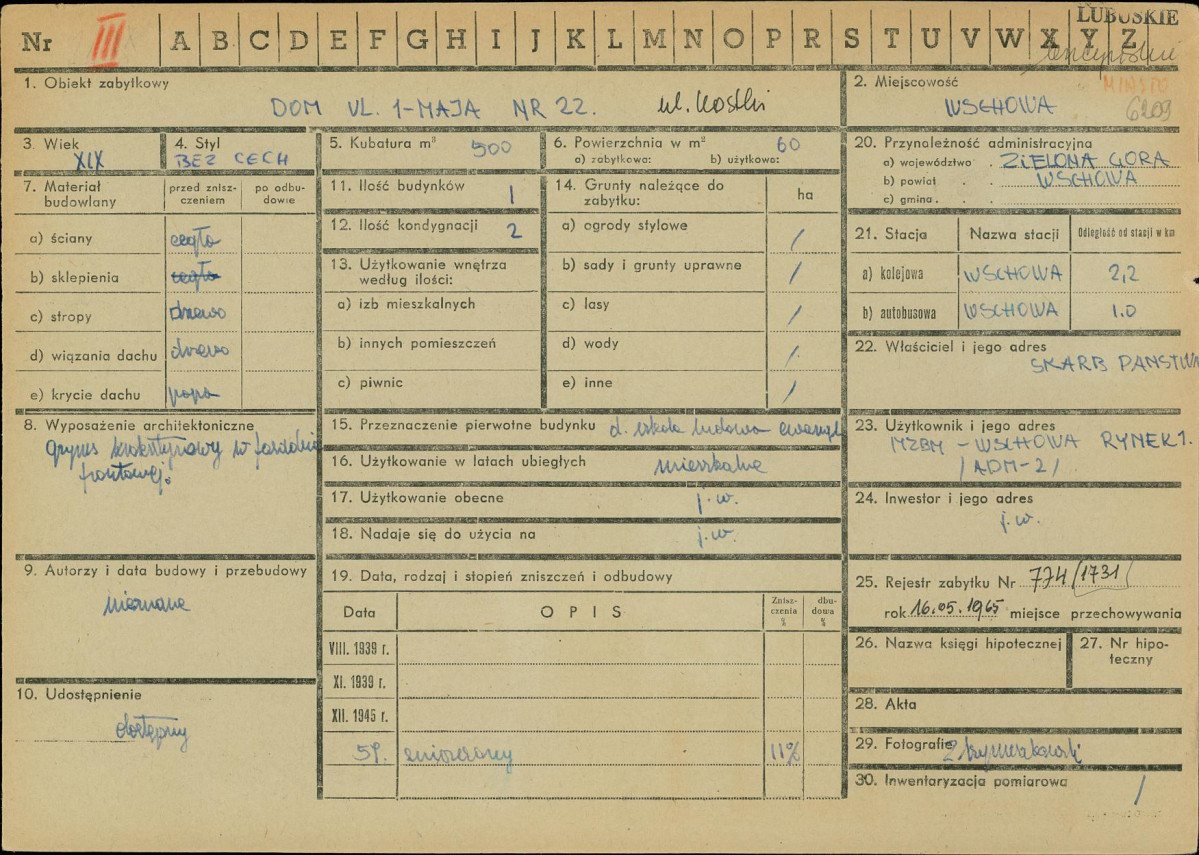 LUBUSKIE
Nr III A B C D E F G H I J K L M N O P R S T U V W X Y Z
1. Obiekt zabytkowy
DOM UL. 1-MAJA NR 22. ul. Kostki
2. Miejscowość
MIASTO
WSCHOWA 6209
3. Wiek
XIX
4. Styl
BEZ CECH
5. Kubatura m³ 500
6. Powierzchnia w m² 60
a) zabytkowa: b) użytkowa:
20. Przynależność administracyjna
a) województwo . ZIELONA GÓRA
b) powiat . . WSCHOWA
c) gmina . . .
7. Materiał budowlany
przed zniszczeniem
po odbudowie
a) ściany cegła
b) sklepienia cegła
c) stropy drzewo
d) wiązania dachu drzewo
e) krycie dachu papa
11. Ilość budynków 1
12. Ilość kondygnacji 2
13. Użytkowanie wnętrza według ilości:
a) izb mieszkalnych
b) innych pomieszczeń
c) piwnic
14. Grunty należące do zabytku: ha
a) ogrody stylowe /
b) sady i grunty uprawne /
c) lasy /
d) wody /
e) inne /
21. Stacja Nazwa stacji Odległość od stacji w km
a) kolejowa WSCHOWA 2,2
b) autobusowa WSCHOWA 1.0
22. Właściciel i jego adres
SKARB PAŃSTWA
8. Wyposażenie architektoniczne
gzyms kroksztynowy w fasadzie
frontowej.
15. Przeznaczenie pierwotne budynku d. szkoła ludowa ewangel
16. Użytkowanie w latach ubiegłych mieszkalne
17. Użytkowanie obecne j.w.
18. Nadaje się do użycia na j.w.
23. Użytkownik i jego adres
MZBM - WSCHOWA RYNEK 1.
/ADM-2/
24. Inwestor i jego adres
j.w.
9. Autorzy i data budowy i przebudowy
nieznane
19. Data, rodzaj i stopień zniszczeń i odbudowy
Data OPIS Zniszczenia % dbudowa %
VIII. 1939 r.
XI. 1939 r.
XII. 1945 r.
59. 11%
25. Rejestr zabytku Nr 774/1731
rok 16.05.1965 miejsce przechowywania
26. Nazwa księgi hipotecznej
27. Nr hipoteczny
10. Udostępnienie
dostępny
28. Akta
29. Fotografie
30. Inwentaryzacja pomiarowa /